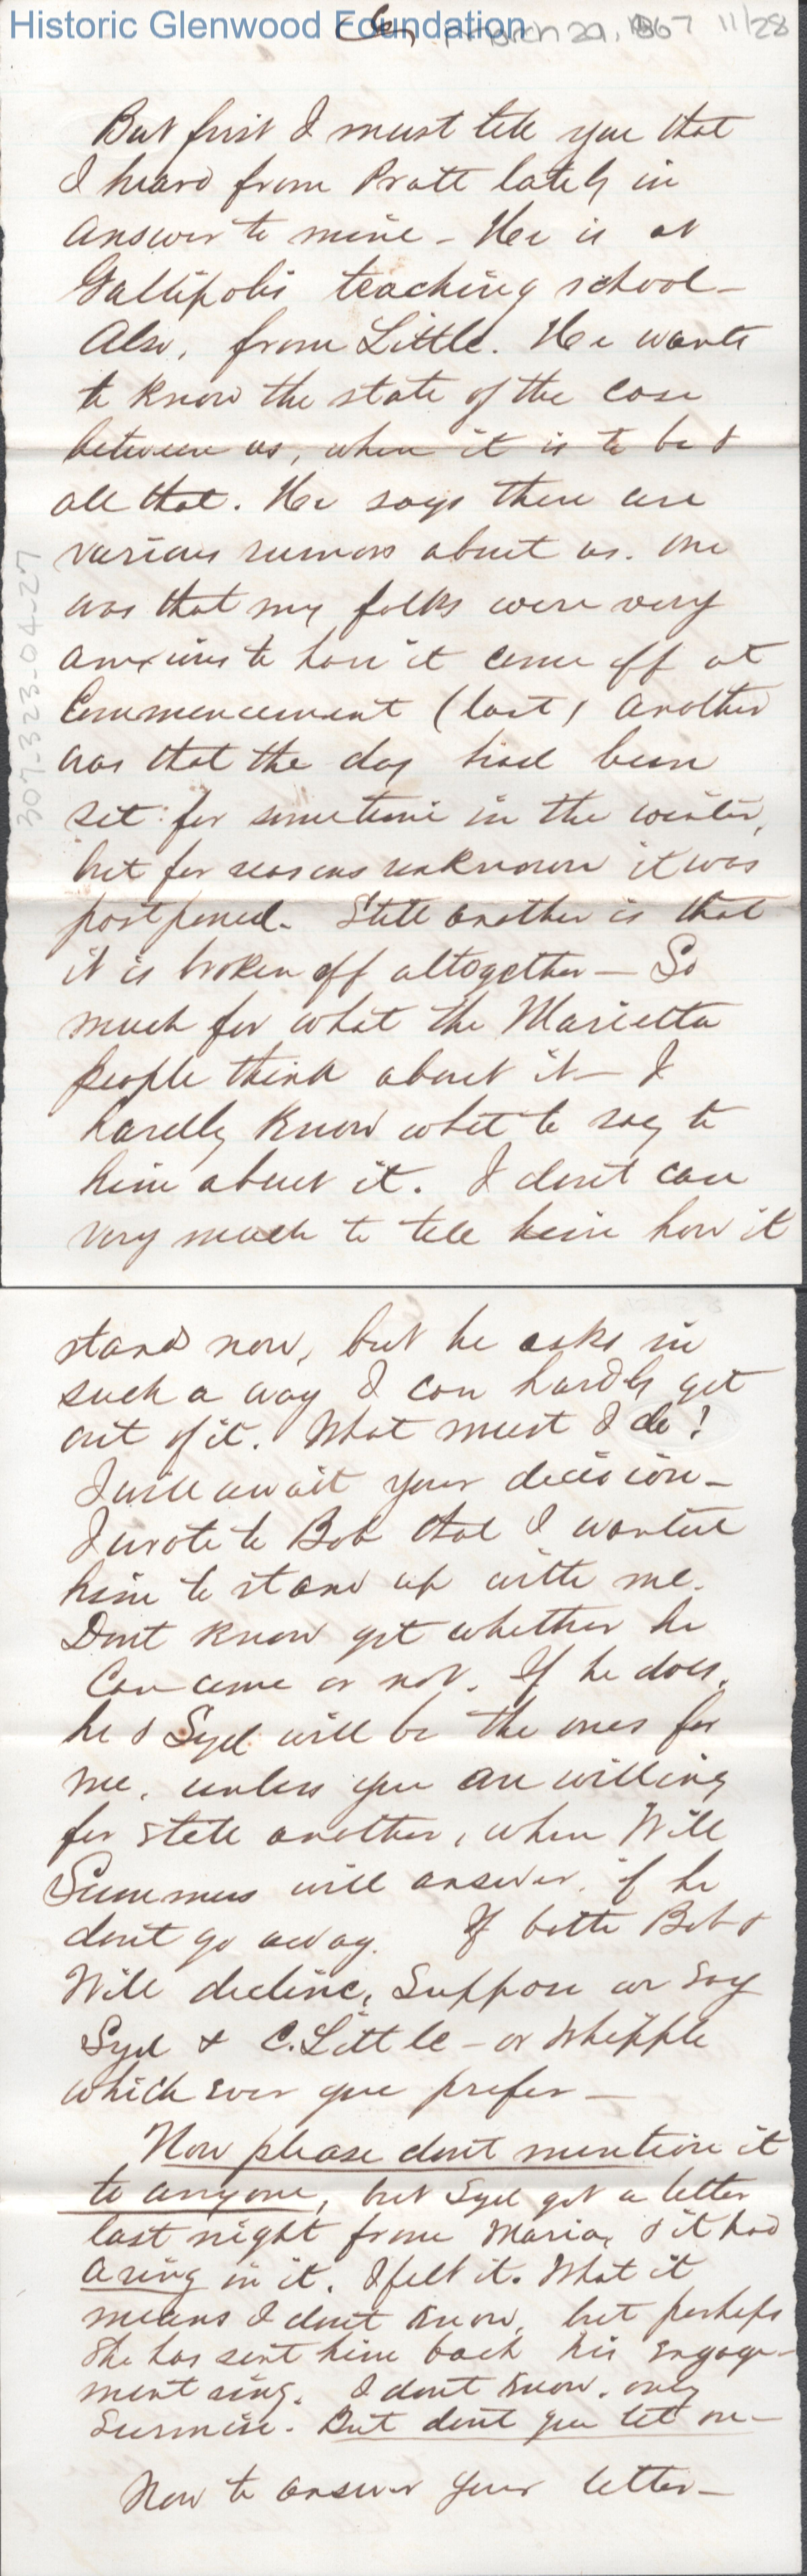 Historic Glenwood Foundation
6, March 29, 1867 11/28
But first I must tell you that
I heard from Pratt lately in
answer to mine - He is at
Gallipolis teaching school -
Also, from Little. He wants
to know the state of the case
between us, when it is to be &
all that. He says there are
various rumors about us. One
was that my folks were very
anxious to have it come off at
Commencement (last) another
was that the day had been
set for sometime in the winter,
but for reasons unknown it was
postponed. Still another is that
it is broken off altogether - So
much for what the Marietta
people think about it - I
hardly know what to say to
him about it. I dont care
very much to tell him how it
307-323-04-27
stands now, but he asks in
such a way I can hardly get
out of it. What must I do?
I will await your decision -
I wrote to Bob that I wanted
him to stand up with me.
Dont know yet whether he
can come or not. If he does,
he & Syd will be the ones for
me, unless you are willing
for still another, when Will
Summers will answer, if he
dont go away. If both Bob &
Will decline, suppose we say
Syd & C. Little - or Whipple
which ever you prefer -
Now please dont mention it
to anyone, but Syd got a letter
last night from Maria, & it had
a ring in it. I felt it. What it
means I dont know, but perhaps
she has sent him back his engage-
ment ring. I dont know. only
surmise. But dont you let on -
Now to answer your letter -